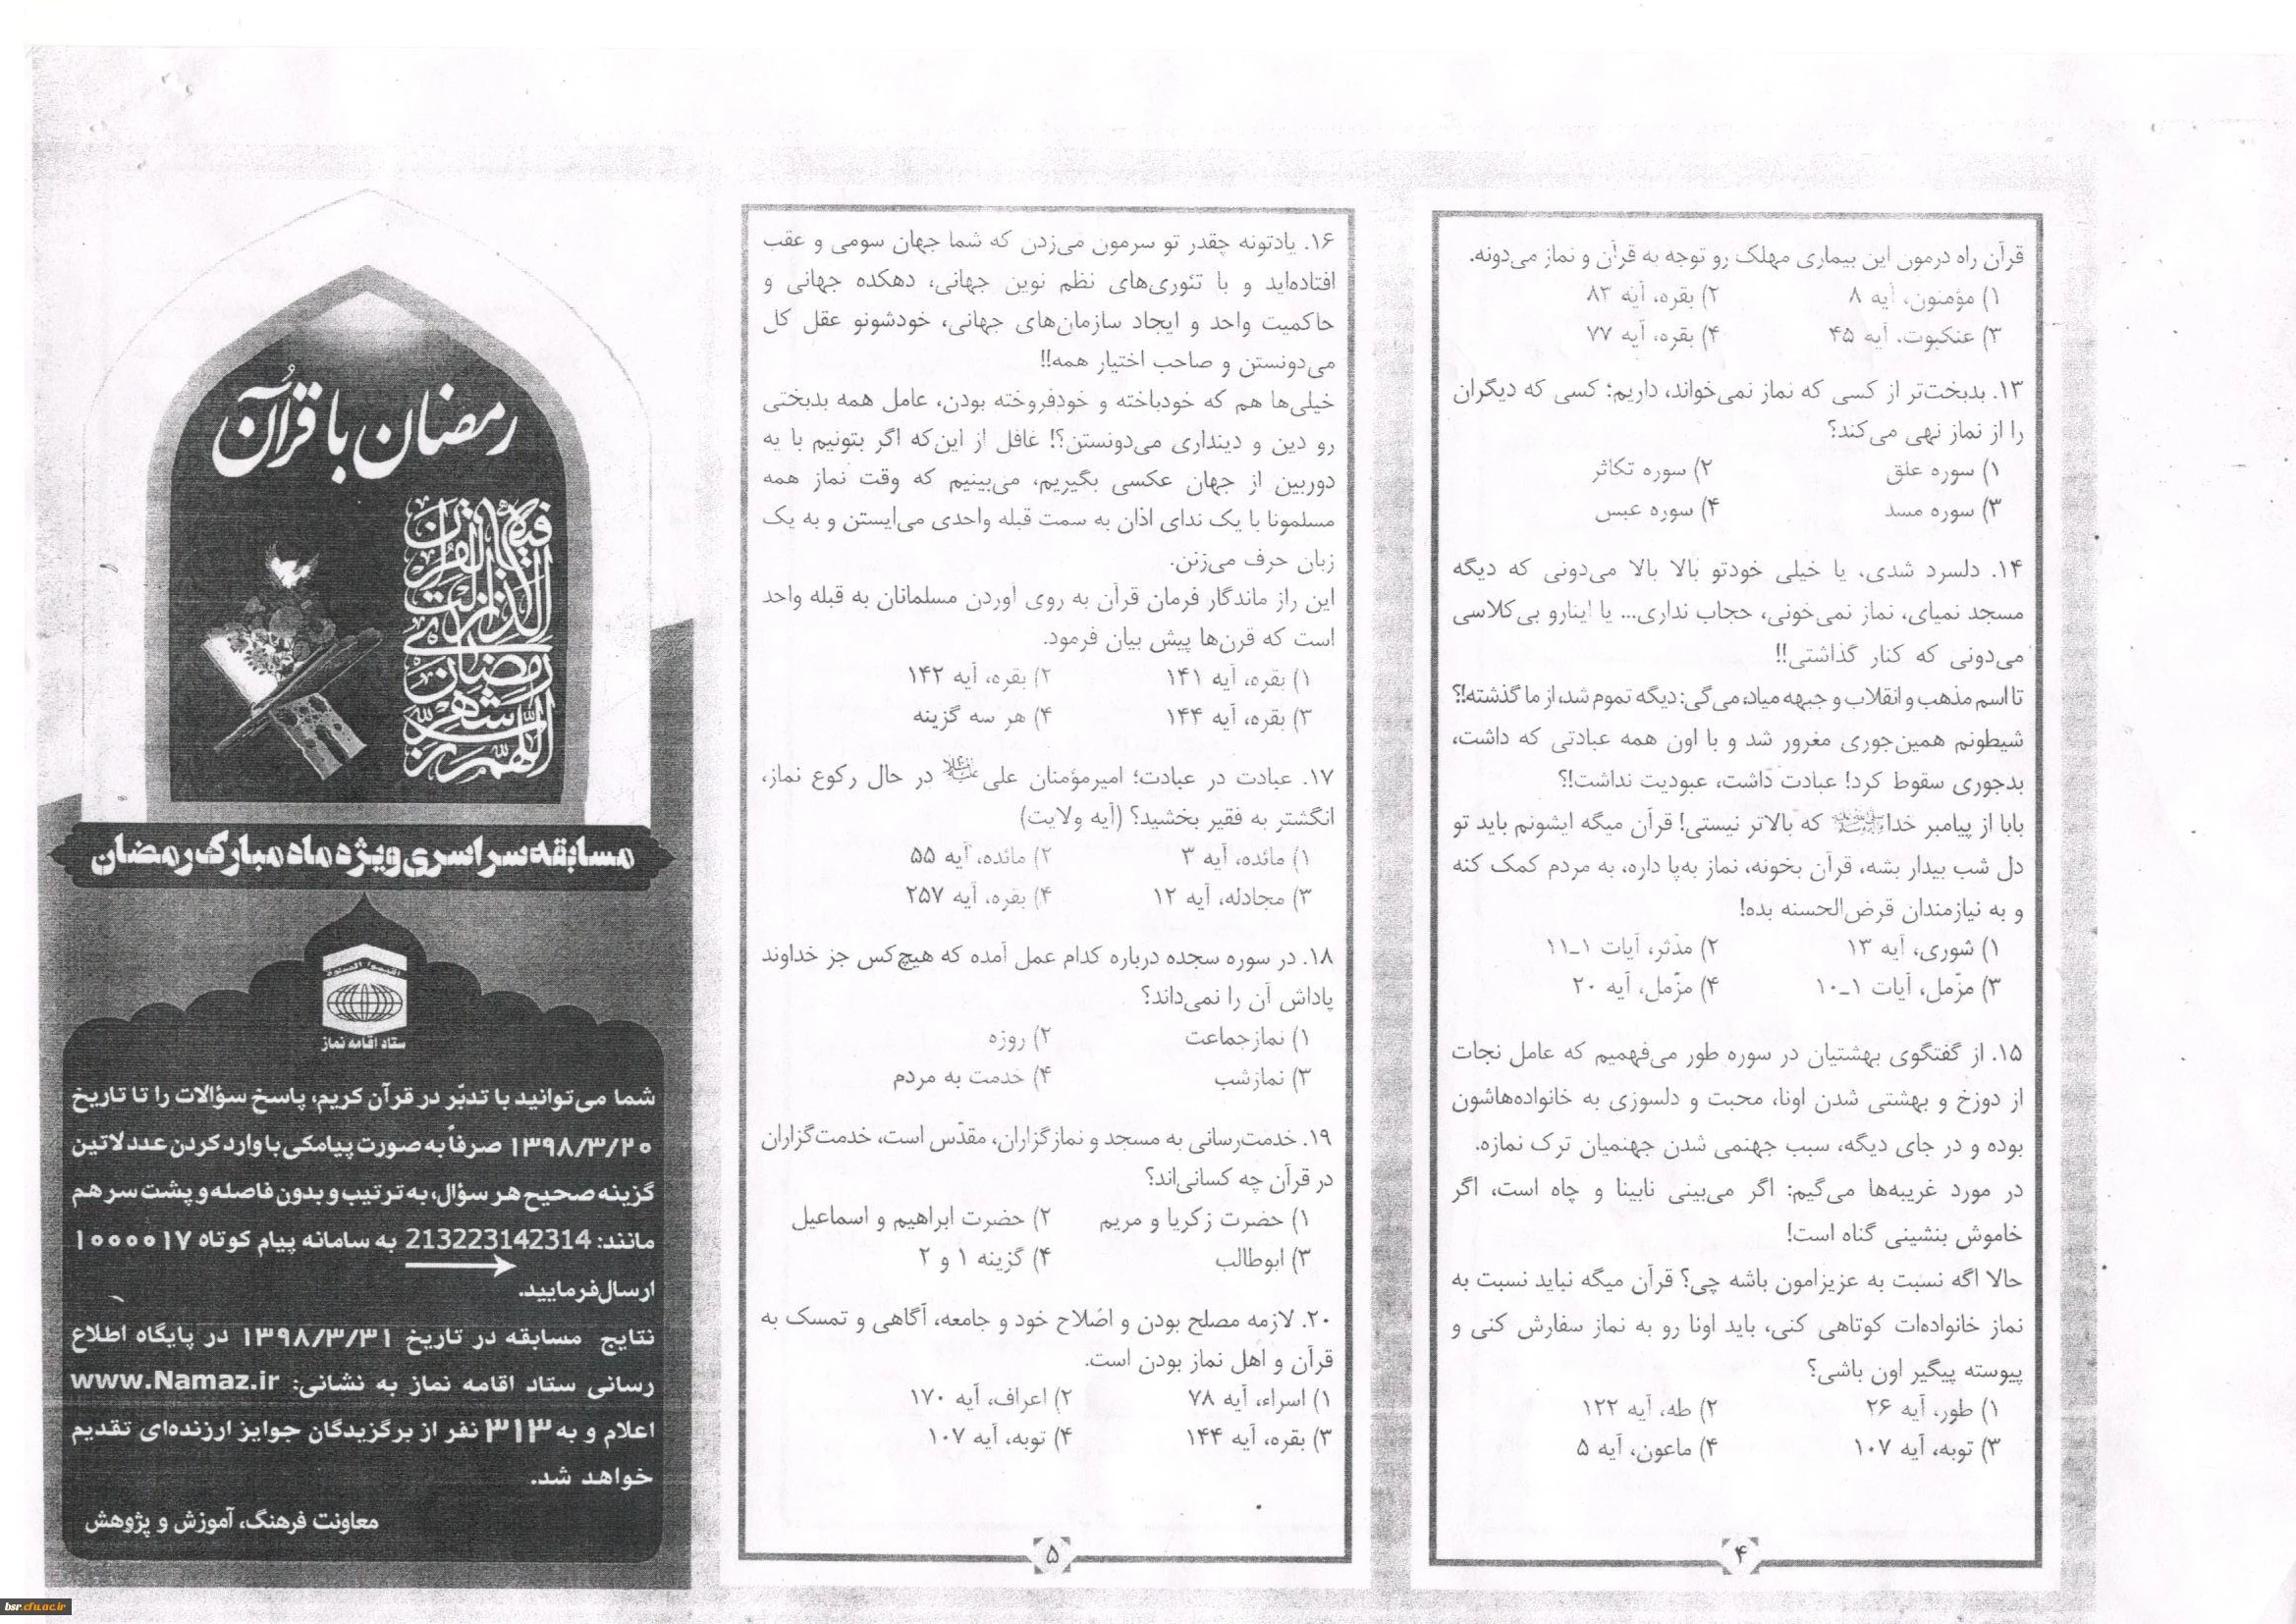 قرآن راه درمون این بیماری مهلک رو توجه به قرآن و نماز می‌دونه.
۱) مؤمنون، آیه ۸ ۲) بقره، آیه ۸۳
۳) عنکبوت، آیه ۴۵ ۴) بقره، آیه ۷۷
۱۳. بدبخت‌تر از کسی که نماز نمی‌خواند، داریم؛ کسی که دیگران
را از نماز نهی می‌کند؟
۱) سوره علق ۲) سوره تکاثر
۳) سوره مسد ۴) سوره عبس
۱۴. دلسرد شدی، یا خیلی خودتو بالا بالا می‌دونی که دیگه
مسجد نمیای، نماز نمی‌خونی، حجاب نداری... یا اینارو بی‌کلاسی
می‌دونی که کنار گذاشتی!!
تا اسم مذهب و انقلاب و جبهه میاد، می‌گی: دیگه تموم شد، از ما گذشته!؟
شیطونم همین‌جوری مغرور شد و با اون همه عبادتی که داشت،
بدجوری سقوط کرد! عبادت داشت، عبودیت نداشت!؟
بابا از پیامبر خدا که بالاتر نیستی! قرآن میگه ایشونم باید تو
دل شب بیدار بشه، قرآن بخونه، نماز به‌پا داره، به مردم کمک کنه
و به نیازمندان قرض‌الحسنه بده!
۱) شوری، آیه ۱۳ ۲) مدّثر، آیات ۱ـ۱۱
۳) مزّمل، آیات ۱ـ۱۰ ۴) مزّمل، آیه ۲۰
۱۵. از گفتگوی بهشتیان در سوره طور می‌فهمیم که عامل نجات
از دوزخ و بهشتی شدن اونا، محبت و دلسوزی به خانواده‌هاشون
بوده و در جای دیگه، سبب جهنمی شدن جهنمیان ترک نمازه.
در مورد غریبه‌ها می‌گیم: اگر می‌بینی نابینا و چاه است، اگر
خاموش بنشینی گناه است!
حالا اگه نسبت به عزیزامون باشه چی؟ قرآن میگه نباید نسبت به
نماز خانواده‌ات کوتاهی کنی، باید اونا رو به نماز سفارش کنی و
پیوسته پیگیر اون باشی؟
۱) طور، آیه ۲۶ ۲) طه، آیه ۱۲۲
۳) توبه، آیه ۱۰۷ ۴) ماعون، آیه ۵
۴
۱۶. یادتونه چقدر تو سرمون می‌زدن که شما جهان سومی و عقب
افتاده‌اید و با تئوری‌های نظم نوین جهانی، دهکده جهانی و
حاکمیت واحد و ایجاد سازمان‌های جهانی، خودشونو عقل کل
می‌دونستن و صاحب اختیار همه!!
خیلی‌ها هم که خودباخته و خودفروخته بودن، عامل همه بدبختی
رو دین و دینداری می‌دونستن؟! غافل از این‌که اگر بتونیم با یه
دوربین از جهان عکسی بگیریم، می‌بینیم که وقت نماز همه
مسلمونا با یک ندای اذان به سمت قبله واحدی می‌ایستن و به یک
زبان حرف می‌زنن.
این راز ماندگار فرمان قرآن به روی آوردن مسلمانان به قبله واحد
است که قرن‌ها پیش بیان فرمود.
۱) بقره، آیه ۱۴۱ ۲) بقره، آیه ۱۴۲
۳) بقره، آیه ۱۴۴ ۴) هر سه گزینه
۱۷. عبادت در عبادت؛ امیرمؤمنان علی در حال رکوع نماز،
انگشتر به فقیر بخشید؟ (آیه ولایت)
۱) مائده، آیه ۳ ۲) مائده، آیه ۵۵
۳) مجادله، آیه ۱۲ ۴) بقره، آیه ۲۵۷
۱۸. در سوره سجده درباره کدام عمل آمده که هیچ‌کس جز خداوند
پاداش آن را نمی‌داند؟
۱) نمازجماعت ۲) روزه
۳) نمازشب ۴) خدمت به مردم
۱۹. خدمت‌رسانی به مسجد و نمازگزاران، مقدّس است، خدمت‌گزاران
در قرآن چه کسانی‌اند؟
۱) حضرت زکریا و مریم ۲) حضرت ابراهیم و اسماعیل
۳) ابوطالب ۴) گزینه ۱ و ۲
۲۰. لازمه مصلح بودن و اصلاح خود و جامعه، آگاهی و تمسک به
قرآن و اهل نماز بودن است.
۱) اسراء، آیه ۷۸ ۲) اعراف، آیه ۱۷۰
۳) بقره، آیه ۱۴۴ ۴) توبه، آیه ۱۰۷
۵
رمضان با قرآن
اللهم رب شهر رمضان الذی انزلت فیه القرآن
مسابقه سراسری ویژه ماه مبارک رمضان
اقیموا الصلوة
ستاد اقامه نماز
شما می‌توانید با تدبّر در قرآن کریم، پاسخ سؤالات را تا تاریخ
۱۳۹۸/۳/۲۰ صرفاً به صورت پیامکی با وارد کردن عدد لاتین
گزینه صحیح هر سؤال، به ترتیب و بدون فاصله و پشت سر هم
مانند: 213223142314 به سامانه پیام کوتاه ۱۰۰۰۰۱۷
ارسال فرمایید.
نتایج مسابقه در تاریخ ۱۳۹۸/۳/۳۱ در پایگاه اطلاع
رسانی ستاد اقامه نماز به نشانی: www.Namaz.ir
اعلام و به ۳۱۳ نفر از برگزیدگان جوایز ارزنده‌ای تقدیم
خواهد شد.
معاونت فرهنگ، آموزش و پژوهش
bsr.cfu.ac.ir